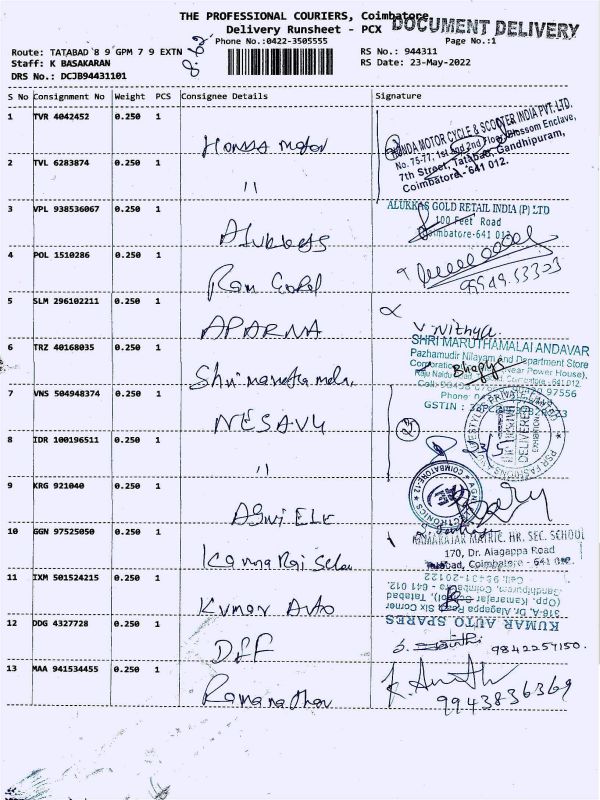 THE PROFESSIONAL COURIERS, Coimbatore
Delivery Runsheet - PCX
DOCUMENT DELIVERY
Phone No.:0422-3505555
Page No.:1
Route: TATABAD 8 9 GPM 7 9 EXTN
RS No.: 944311
Staff: K BASAKARAN
RS Date: 23-May-2022
DRS No.: DCJB94431101
S No Consignment No Weight PCS Consignee Details Signature
1 TVR 4042452 0.250 1
Honda Motor
HONDA MOTOR CYCLE & SCOOTER INDIA PVT. LTD.
No. 75-77, 1st and 2nd Floor, Blossom Enclave,
7th Street, Tatabad, Gandhipuram,
Coimbatore - 641 012.
2 TVL 6283874 0.250 1
"
3 VPL 938536067 0.250 1
Alukkas
ALUKKAS GOLD RETAIL INDIA (P) LTD
100 Feet Road
Coimbatore-641 012
4 POL 1510286 0.250 1
5 SLM 296102211 0.250 1
APARNA
V. Nithya
6 TRZ 40168035 0.250 1
SHRI MARUTHAMALAI ANDAVAR
Pazhamudir Nilayam And Department Store
7 VNS 504948374 0.250 1
NESAVU
GSTIN :
8 IDR 100196511 0.250 1
"
23/5
DELIVERED
9 KRG 921040 0.250 1
COIMBATORE-12
ELECTRONICS
10 GGN 97525050 0.250 1
KAMARAJAR MATRIC. HR. SEC. SCHOOL
170, Dr. Alagappa Road
Tatabad, Coimbatore - 641 012.
11 IXM 501524215 0.250 1
Kumar Auto
KUMAR AUTO SPARES
316-A, Dr. Alagappa Road, Six Corner
(Opp. Kamarajar School), Tatabad
Gandhipuram, Coimbatore - 641 012.
12 DDG 4327728 0.250 1
9842257150.
13 MAA 941534455 0.250 1
Ramanathan
9943836369